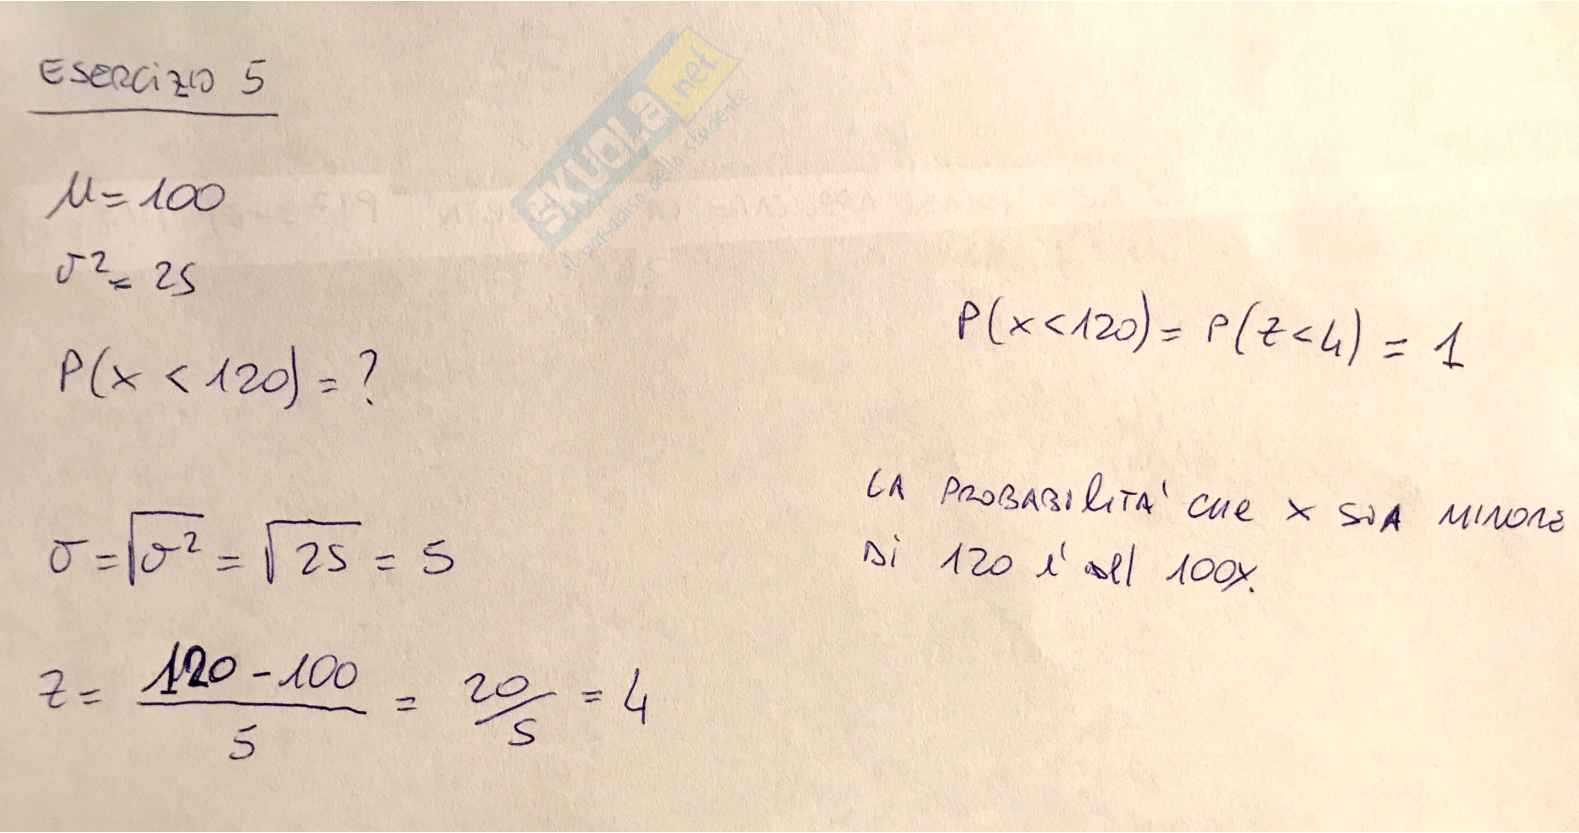 ESERCIZIO 5
μ = 100
σ² = 25
P(x < 120) = ?
σ = √σ² = √25 = 5
z = 120 - 100 / 5 = 20/5 = 4
P(x < 120) = P(z < 4) = 1
LA PROBABILITA' CHE x SIA MINORE
DI 120 è del 100%.
SKUOLA.net
dello studente